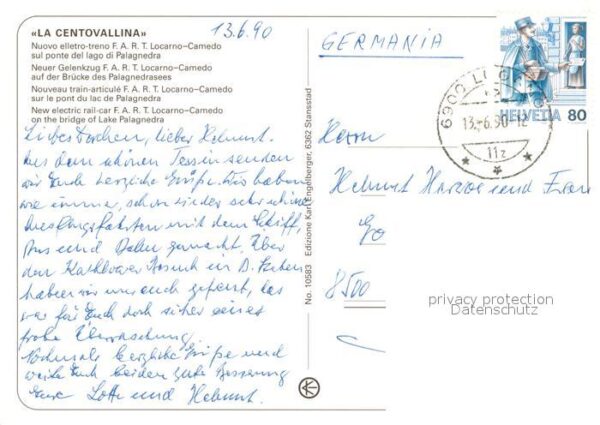 «LA CENTOVALLINA» 13.6.90
Nuovo elletro-treno F. A. R. T. Locarno–Camedo
sul ponte del lago di Palagnedra
Neuer Gelenkzug F. A. R. T. Locarno–Camedo
auf der Brücke des Palagnedrasees
Nouveau train-articulé F. A. R. T. Locarno–Camedo
sur le pont du lac de Palagnedra
New electric rail-car F. A. R. T. Locarno–Camedo
on the bridge of Lake Palagnedra
Liebes Dorchen, lieber Helmut.
Aus dem schönen Tessin senden
wir Euch herzliche Grüße. Wir haben
wie immer, schon wieder sehr schöne
Ausflugsfahrten mit dem Schiff,
Bus und Bahn gemacht. Über
den Besuch in B.
haben wir uns auch gefreut, das
war für Euch doch sicher eines
frohe Überraschung.
Nochmals herzliche Grüße und
weiterhin Euch beiden gute Besserung
Eure Lotte und Helmut.
No. 10583 Edizione Karl Engelberger, 6362 Stansstad
GERMANIA
HELVETIA 80
6900 LUGANO
13.-6.90-12
11z
Herrn
Helmut Herzog und Frau
Go
8500
privacy protection
Datenschutz